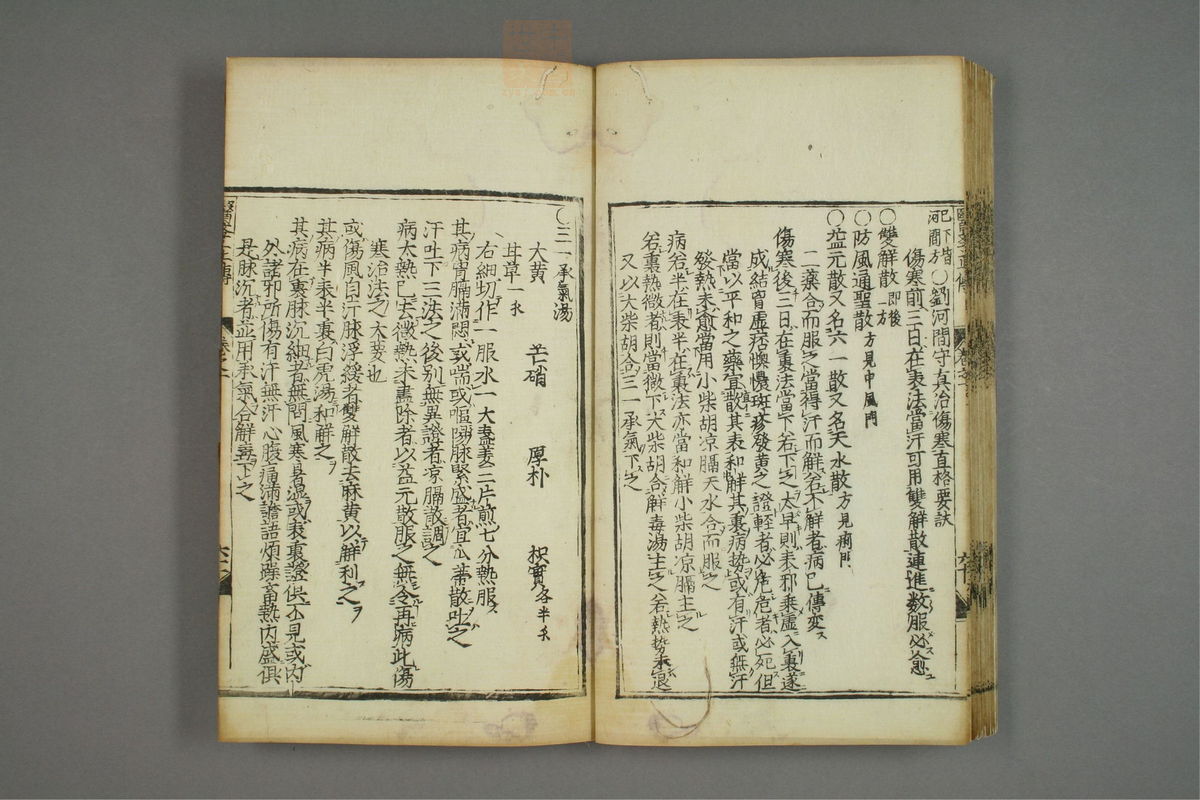 河間方
○劉河間守真治傷寒直格要訣
傷寒前三日在表法當汗可用雙解散連進数服必愈
○雙解散即後二方
○防風通聖散方見中風門
○益元散又名六一散又名天水散方見痢門
二藥合而服之當得汗而解若不解者病已傳変
傷寒後三日在裏法當下若下之太早則表邪乗虚入裏遂
成結胷虚痞懊憹斑疹發黄之證輕者必危危者必死但
當以平和之藥宣散其表和解其裏病势或有汗或無汗
發熱未愈當用小柴胡凉膈天水合而服之
病若半在表半在裏法亦當和解小柴胡凉膈主之
若裏熱微者則當微下大柴胡合解毒湯主之若熱势未退
又以大柴胡合三一承氣下之
○三一承氣湯
大黄 芒硝 厚朴 枳實各半㕥
甘草一㕥
右細切作一服水一大盞薑三片煎七分熱服
其病胷膈滿悶或喘或嘔陽脉緊盛者宜瓜蒂散吐之
汗吐下三法之後别無異證者凉膈散調之
病大熱已去微熱未盡除者以益元散服之無令再病此傷
寒治法之大要也
或傷風自汗脉浮緩者雙解散去麻黄以解利之
其病半表半裏白虎湯和解之
其病在裏脉沉細者無問風寒暑濕或表裏證俱不見或内
外諸邪所傷有汗無汗心腹痛滿譫語煩躁畜熱内盛俱
是脉沉者並用承氣合解毒下之